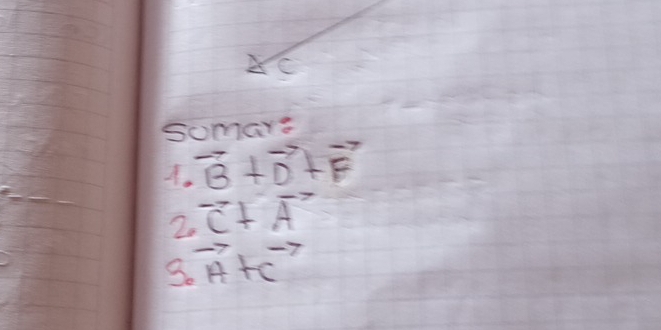 C
Somar:
1. B⃗ + D⃗ + F⃗
2. C⃗ + A⃗
3. A⃗ + C⃗